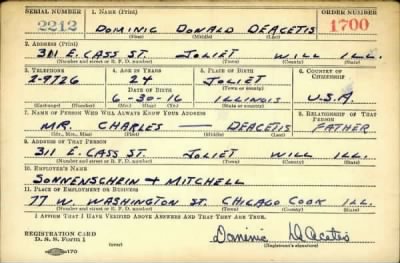 SERIAL NUMBER 1. NAME (Print) ORDER NUMBER
2212 DOMINIC DONALD DEACETIS 1700
(First) (Middle) (Last)
2. ADDRESS (Print)
311 E. CASS ST. JOLIET WILL ILL.
(Number and street or R. F. D. number) (Town) (County) (State)
3. TELEPHONE 4. AGE IN YEARS 5. PLACE OF BIRTH 6. COUNTRY OF CITIZENSHIP
2-9726 24 JOLIET
DATE OF BIRTH (Town or county)
6-30-16 ILLINOIS U.S.A.
(Exchange) (Number) (Mo.) (Day) (Yr.) (State or country)
7. NAME OF PERSON WHO WILL ALWAYS KNOW YOUR ADDRESS 8. RELATIONSHIP OF THAT PERSON
MR. CHARLES — DEACETIS FATHER
(Mr., Mrs., Miss) (First) (Middle) (Last)
9. ADDRESS OF THAT PERSON
311 E. CASS ST. JOLIET WILL ILL.
(Number and street or R. F. D. number) (Town) (County) (State)
10. EMPLOYER'S NAME
SONNENSCHEIN + MITCHELL
11. PLACE OF EMPLOYMENT OR BUSINESS
77 W. WASHINGTON ST. CHICAGO COOK ILL.
(Number and street or R. F. D. number) (Town) (County) (State)
I AFFIRM THAT I HAVE VERIFIED ABOVE ANSWERS AND THAT THEY ARE TRUE.
REGISTRATION CARD
D. S. S. Form 1 Dominic DeAcetis
(Registrant's signature)